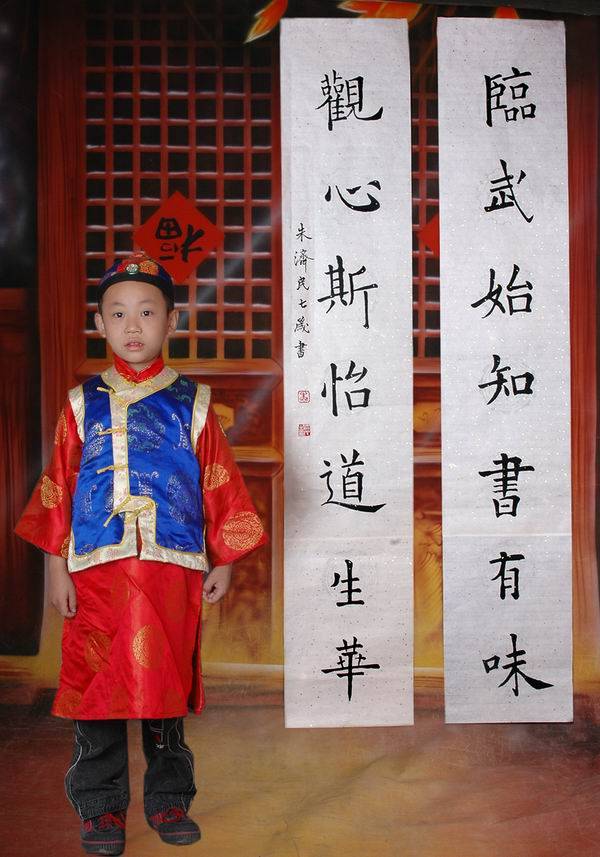 臨武始知書有味
觀心斯怡道生華
朱濟民七歲書
福